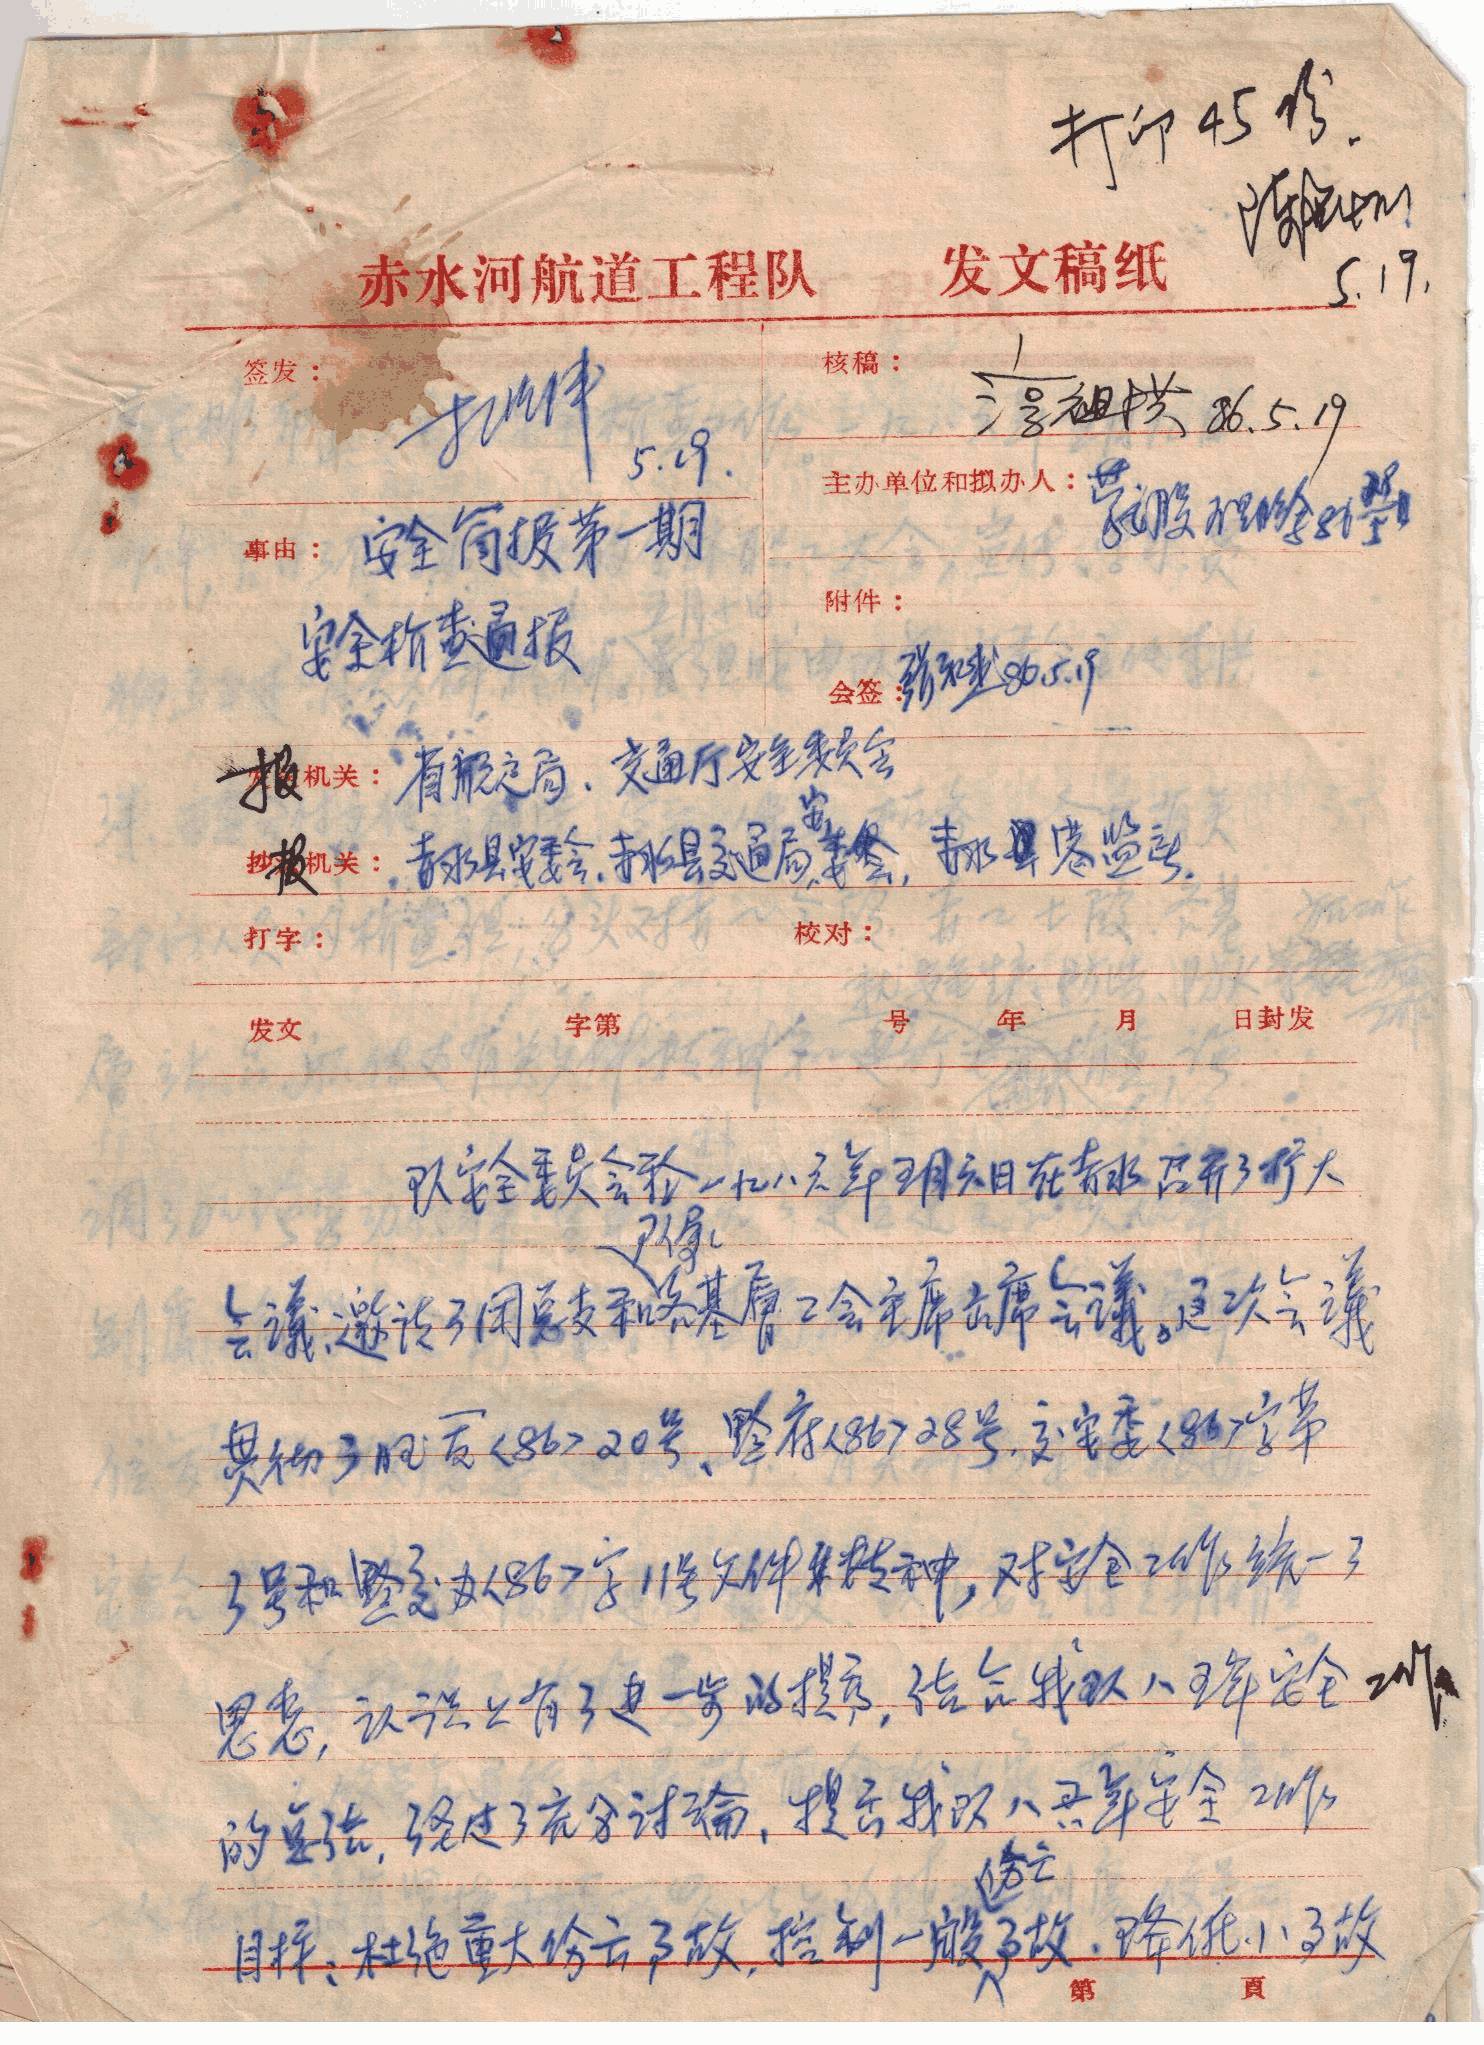 打印45份.
5.19.
赤水河航道工程队 发文稿纸
签发：
5.19.
核稿：
淳祖洪 86.5.19
主办单位和拟办人：
事由： 安全简报第一期
安全检查通报
附件：
会签： 86.5.19
报 机关： 省航运局、交通厅安全委员会
抄报机关： 赤水县安委会、赤水县交通局安委会, 赤水县港监站.
打字： 校对：
发文 字第 号 年 月 日封发
队安全委员会于一九八六年五月六日在赤水召开了扩大
会议、邀请了团总支和各基层工会主席出席会议。这次会议
贯彻了 发<86>20号、黔府<86>28号、交安委<86>字第
3号和黔交办<86>字11号文件精神，对安全工作统一了
思想，认识上有了进一步的提高，结合我队八五年安全工作
的总结，经过了充分讨论，提出我队八六年安全工作
伤亡
目标：杜绝重大伤亡事故，控制一般事故、降低小事故
第 頁